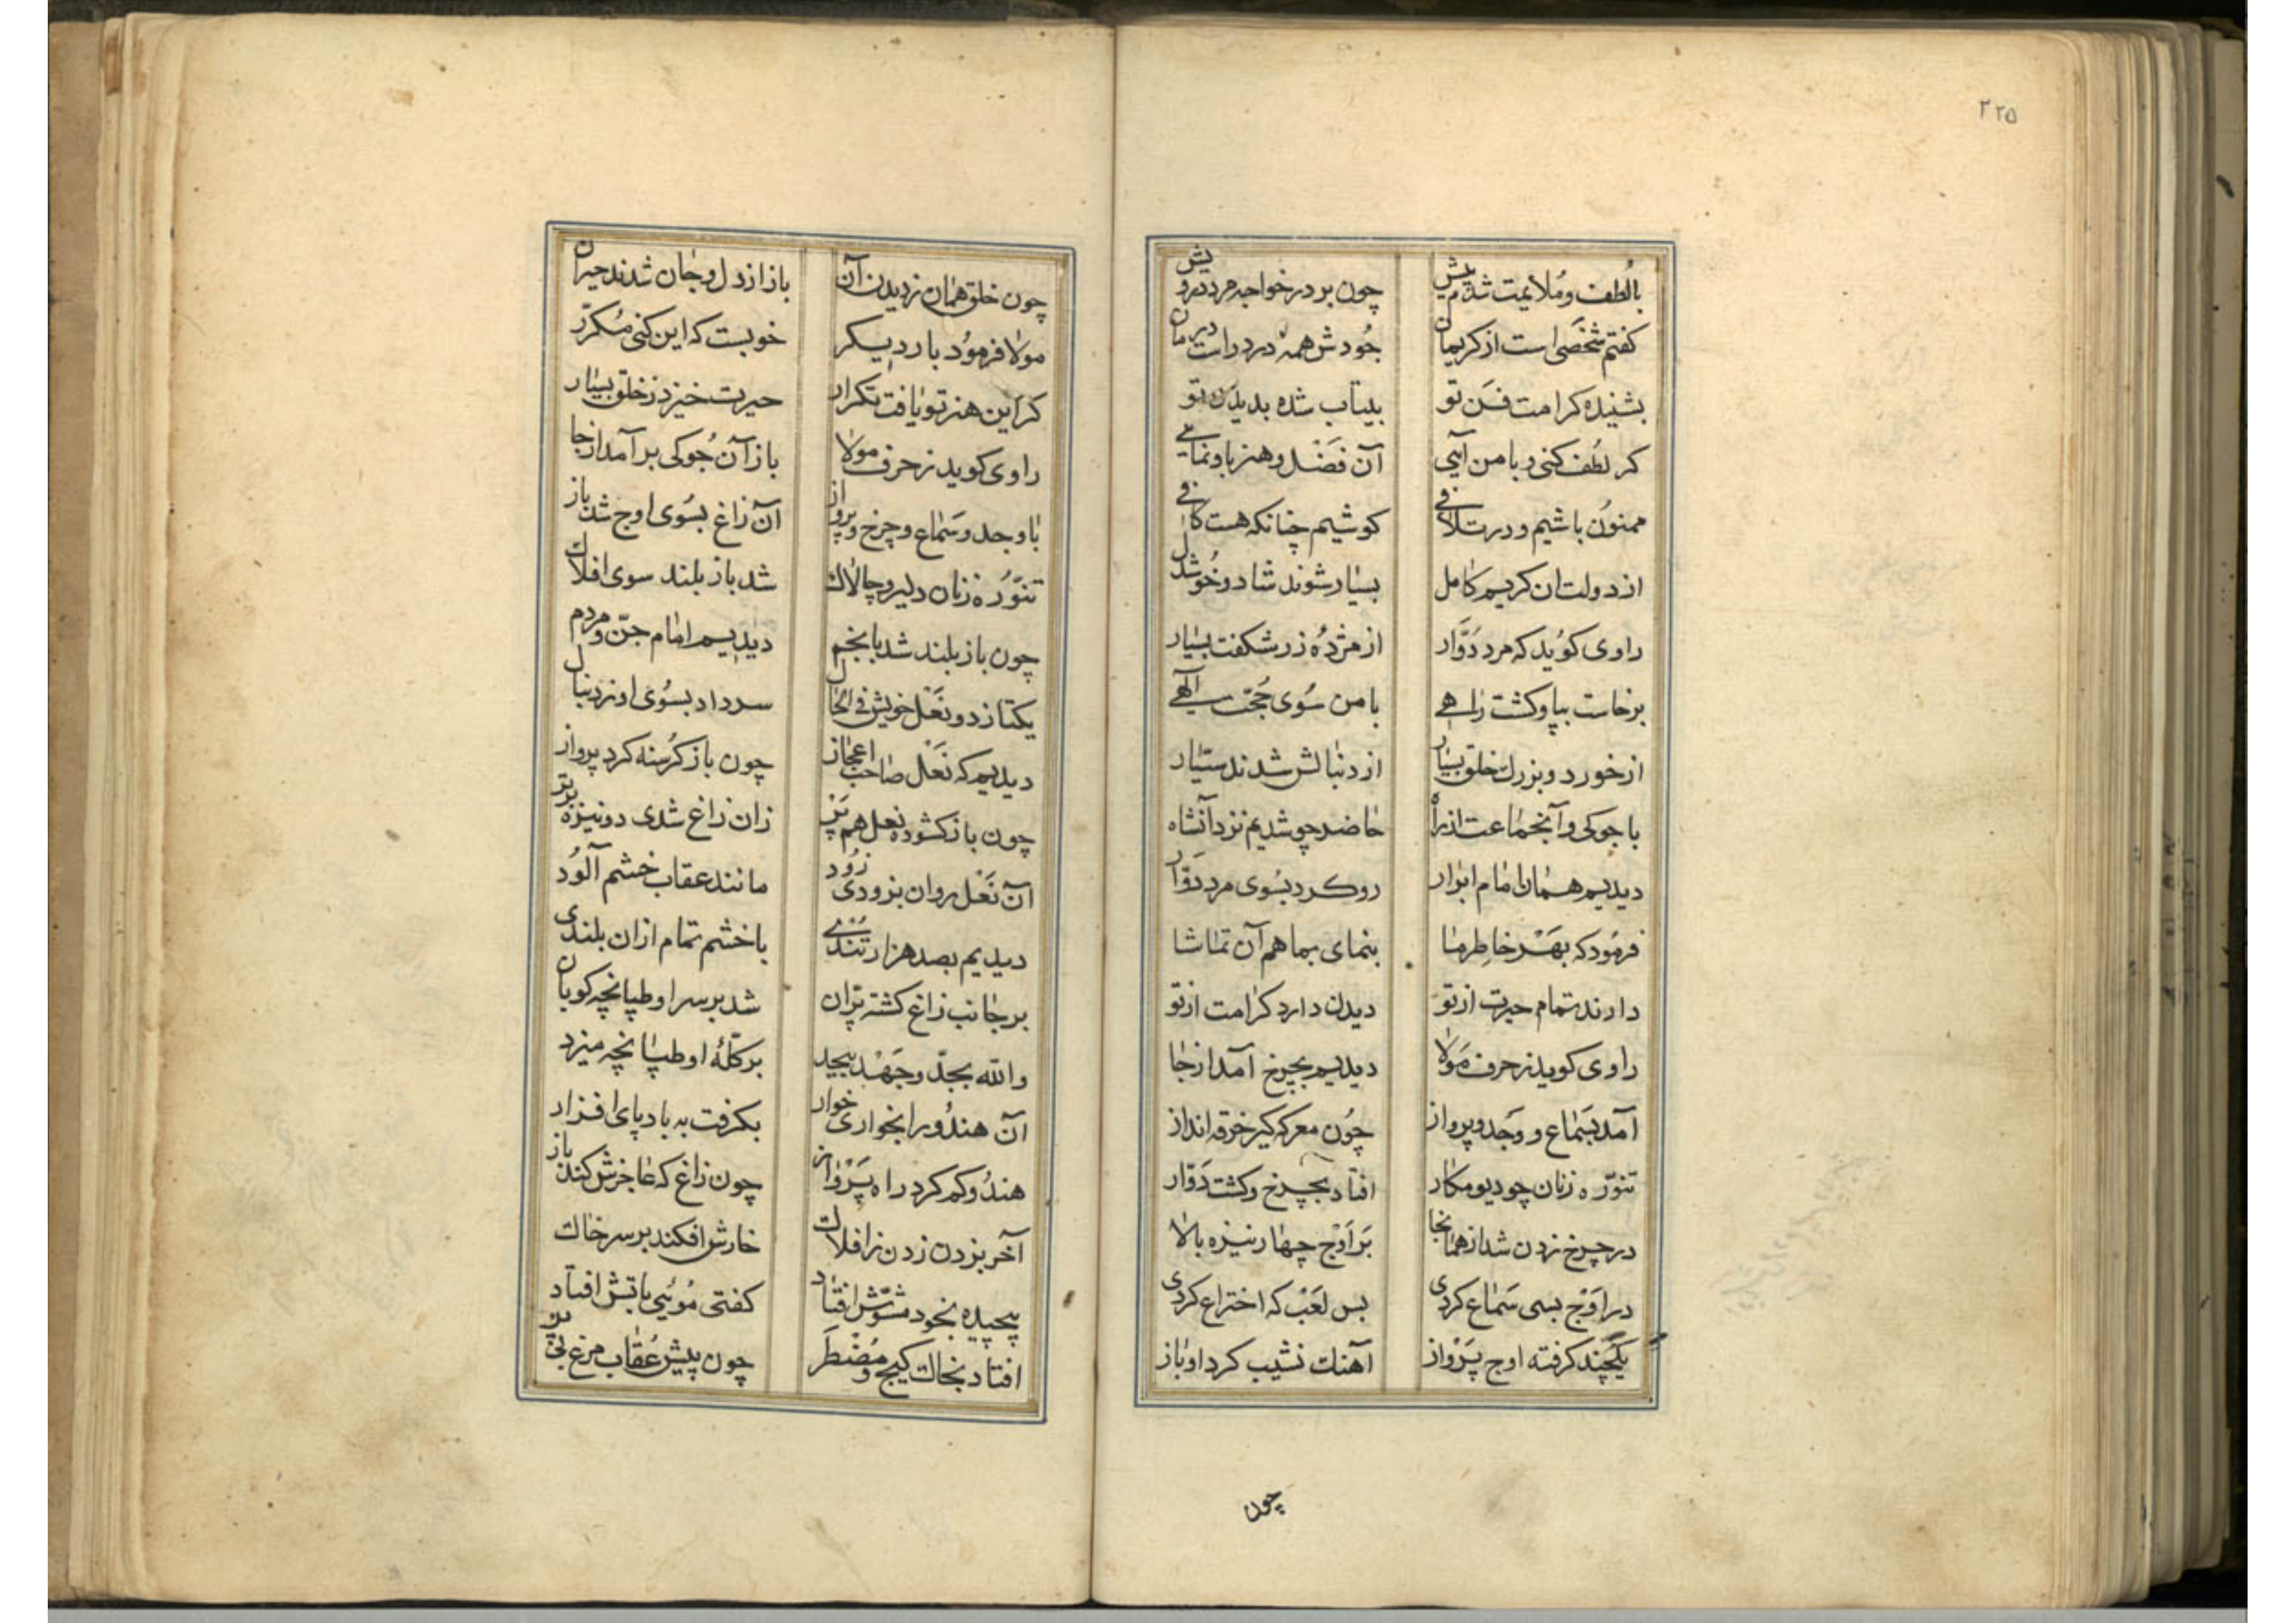 ۲۲۵
با لطف و ملایمت شدم پیش چون بر در خواجه مرد درویش
کفتم شخصی است از کریمان جودش همه درد راست درمان
بشنیده کرامت فن تو بیتاب شده بدیدن تو
کر لطف کنی و با من آیی آن فضل و هنر باو نمایی
ممنون باشیم و در تلافی کوشیم چنانکه هست کافی
از دولت ان کریم کامل بسیار شوند شاد و خوشدل
راوی کوید که مرد دوار از مژده زر شکفت بسیار
برخاست بپا و کشت راهی با من سوی حجت الهی
از خورد و بزرك خلق بسیار از دنبالش شدند سیار
با جوکی و آنجماعت از راه حاضر چو شدیم نزد آنشاه
دیدیم همان امام ابرار رو کرد بسوی مرد دوار
فرمود که بهر خاطر ما بنمای بما هم آن تماشا
دارند تمام حیرت از تو دیدن دارد کرامت از تو
راوی کوید ز حرف مولا دیدیم بچرخ آمد از جا
آمد بسماع و وجد و پرواز چون معرکه کیر خرقه انداز
تنوره زنان چو دیو مکار افتاد بچرخ و کشت دوار
در چرخ زدن شد از همانجا بر اوج چهار نیزه بالا
در اوج بسی سماع کردی بس لعب که اختراع کردی
یکچند کرفته اوج پرواز آهنك نشیب کرد او باز
چون
چون خلق همان ز دیدن آن باز از دل و جان شدند حیران
مولا فرمود بار دیکر خوبست که این کنی مکرر
کر این هنر تو یافت تکرار حیرت خیزد ز خلق بسیار
راوی کوید ز حرف مولا باز آن جوکی بر آمد از جا
با وجد و سماع و چرخ و پرواز آن زاغ بسوی اوج شد باز
تنوره زنان دلیر و چالاك شد باز بلند سوی افلاك
چون باز بلند شد بانجم دیدیم امام جن و مردم
یکتا ز دو نعل خویش فی الحال سر داد بسوی او ز دنبال
دیدیم که نعل صاحب اعجاز چون باز کرسنه کرد پرواز
چون باز کشوده نعل هم پر زان زاغ شدی دو نیزه برتر
آن نعل روان بزودی زود مانند عقاب خشم آلود
دیدیم بصد هزار تندی با خشم تمام ازان بلندی
بر جانب زاغ کشته پران شد بر سر او طپانچه کوبان
والله بجد و جهد بیحد بر کله او طپانچه میزد
آن هندو را بخواری خوار بکرفت به باد پای افزار
هندو کم کرد راه پرواز چون زاغ که عاجزش کند باز
آخر بزدن زدن ز افلاك خارش افکند بر سر خاك
پیچیده بخود مشوش افتاد کفتی موئی باتش افتاد
افتاد بخاك کیج و مضطر چون پیش عقاب مرغ بی پر